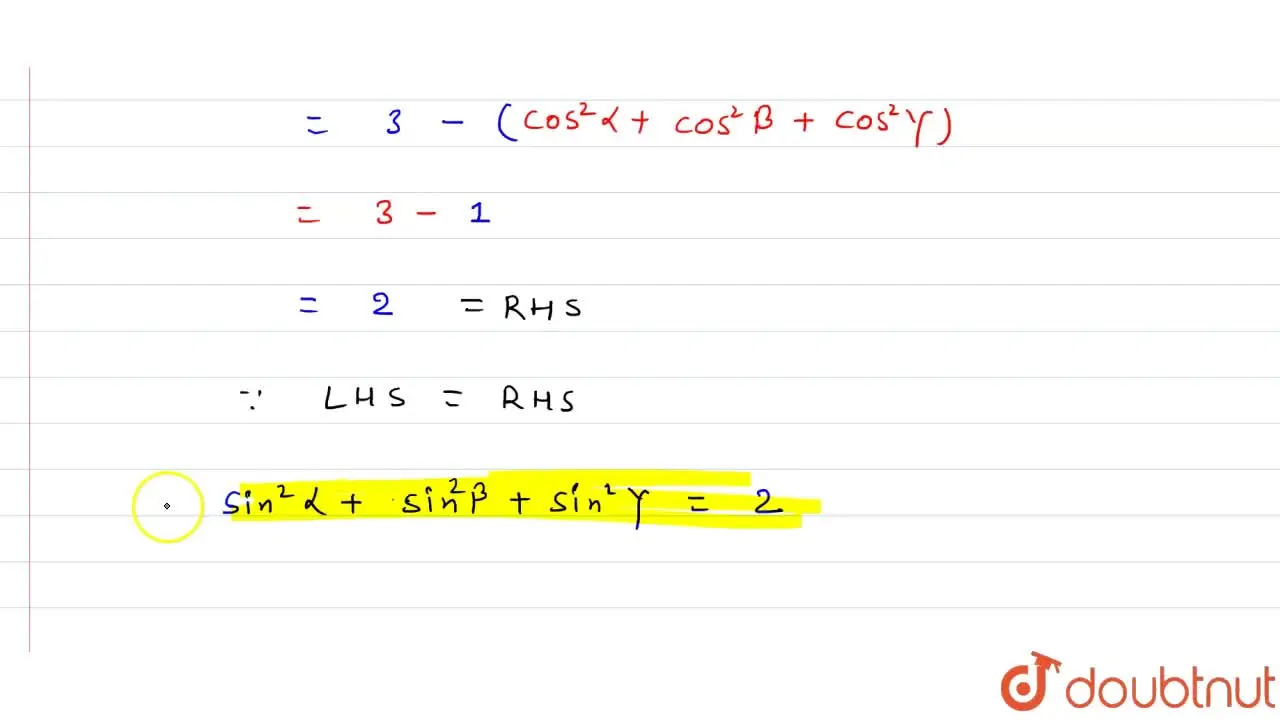 = 3 - (cos²α + cos²β + cos²γ)
= 3 - 1
= 2 = RHS
∵ LHS = RHS
sin²α + sin²β + sin²γ = 2
doubtnut